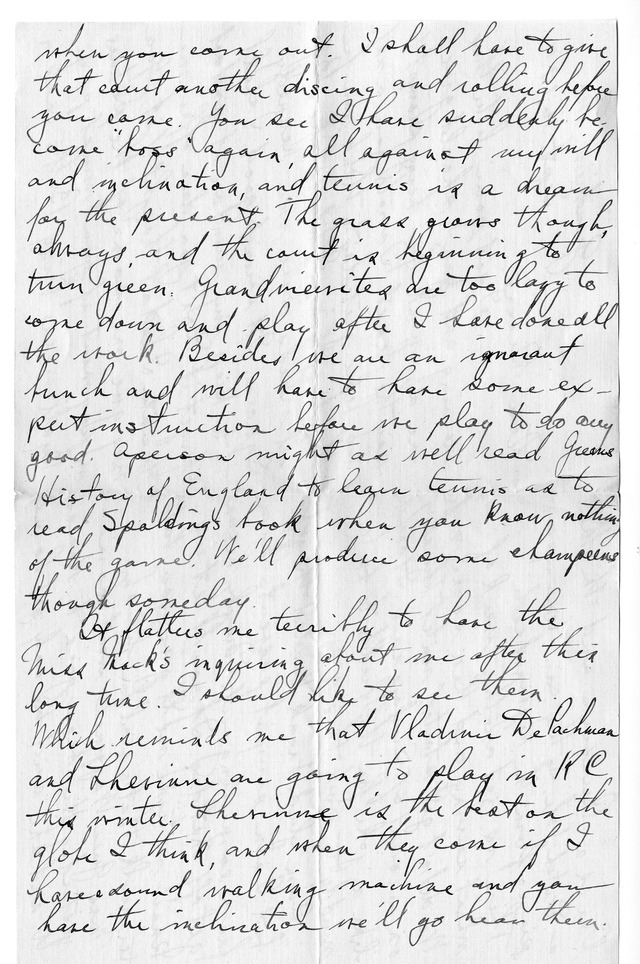 when you come out. I shall have to give
that court another discing and rolling before
you come. You see I have suddenly be-
come "boss" again, all against my will
and inclination, and tennis is a dream
for the present. The grass grows though,
always, and the court is beginning to
turn green. Grandviewites are too lazy to
come down and play after I have done all
the work. Besides we are an ignorant
bunch and will have to have some ex-
pert instruction before we play to do any
good. A person might as well read Greens
History of England to learn tennis as to
read Spaldings book when you know nothing
of the game. We'll produce some champeens
though someday.
It flatters me terribly to have the
Miss Mack's inquiring about me after this
long time. I should like to see them.
Which reminds me that Vladimir De Pachman
and Lhevinne are going to play in K C
this winter. Lhevinne is the best on the
globe I think, and when they come if I
have a sound walking machine and you
have the inclination we'll go hear them.